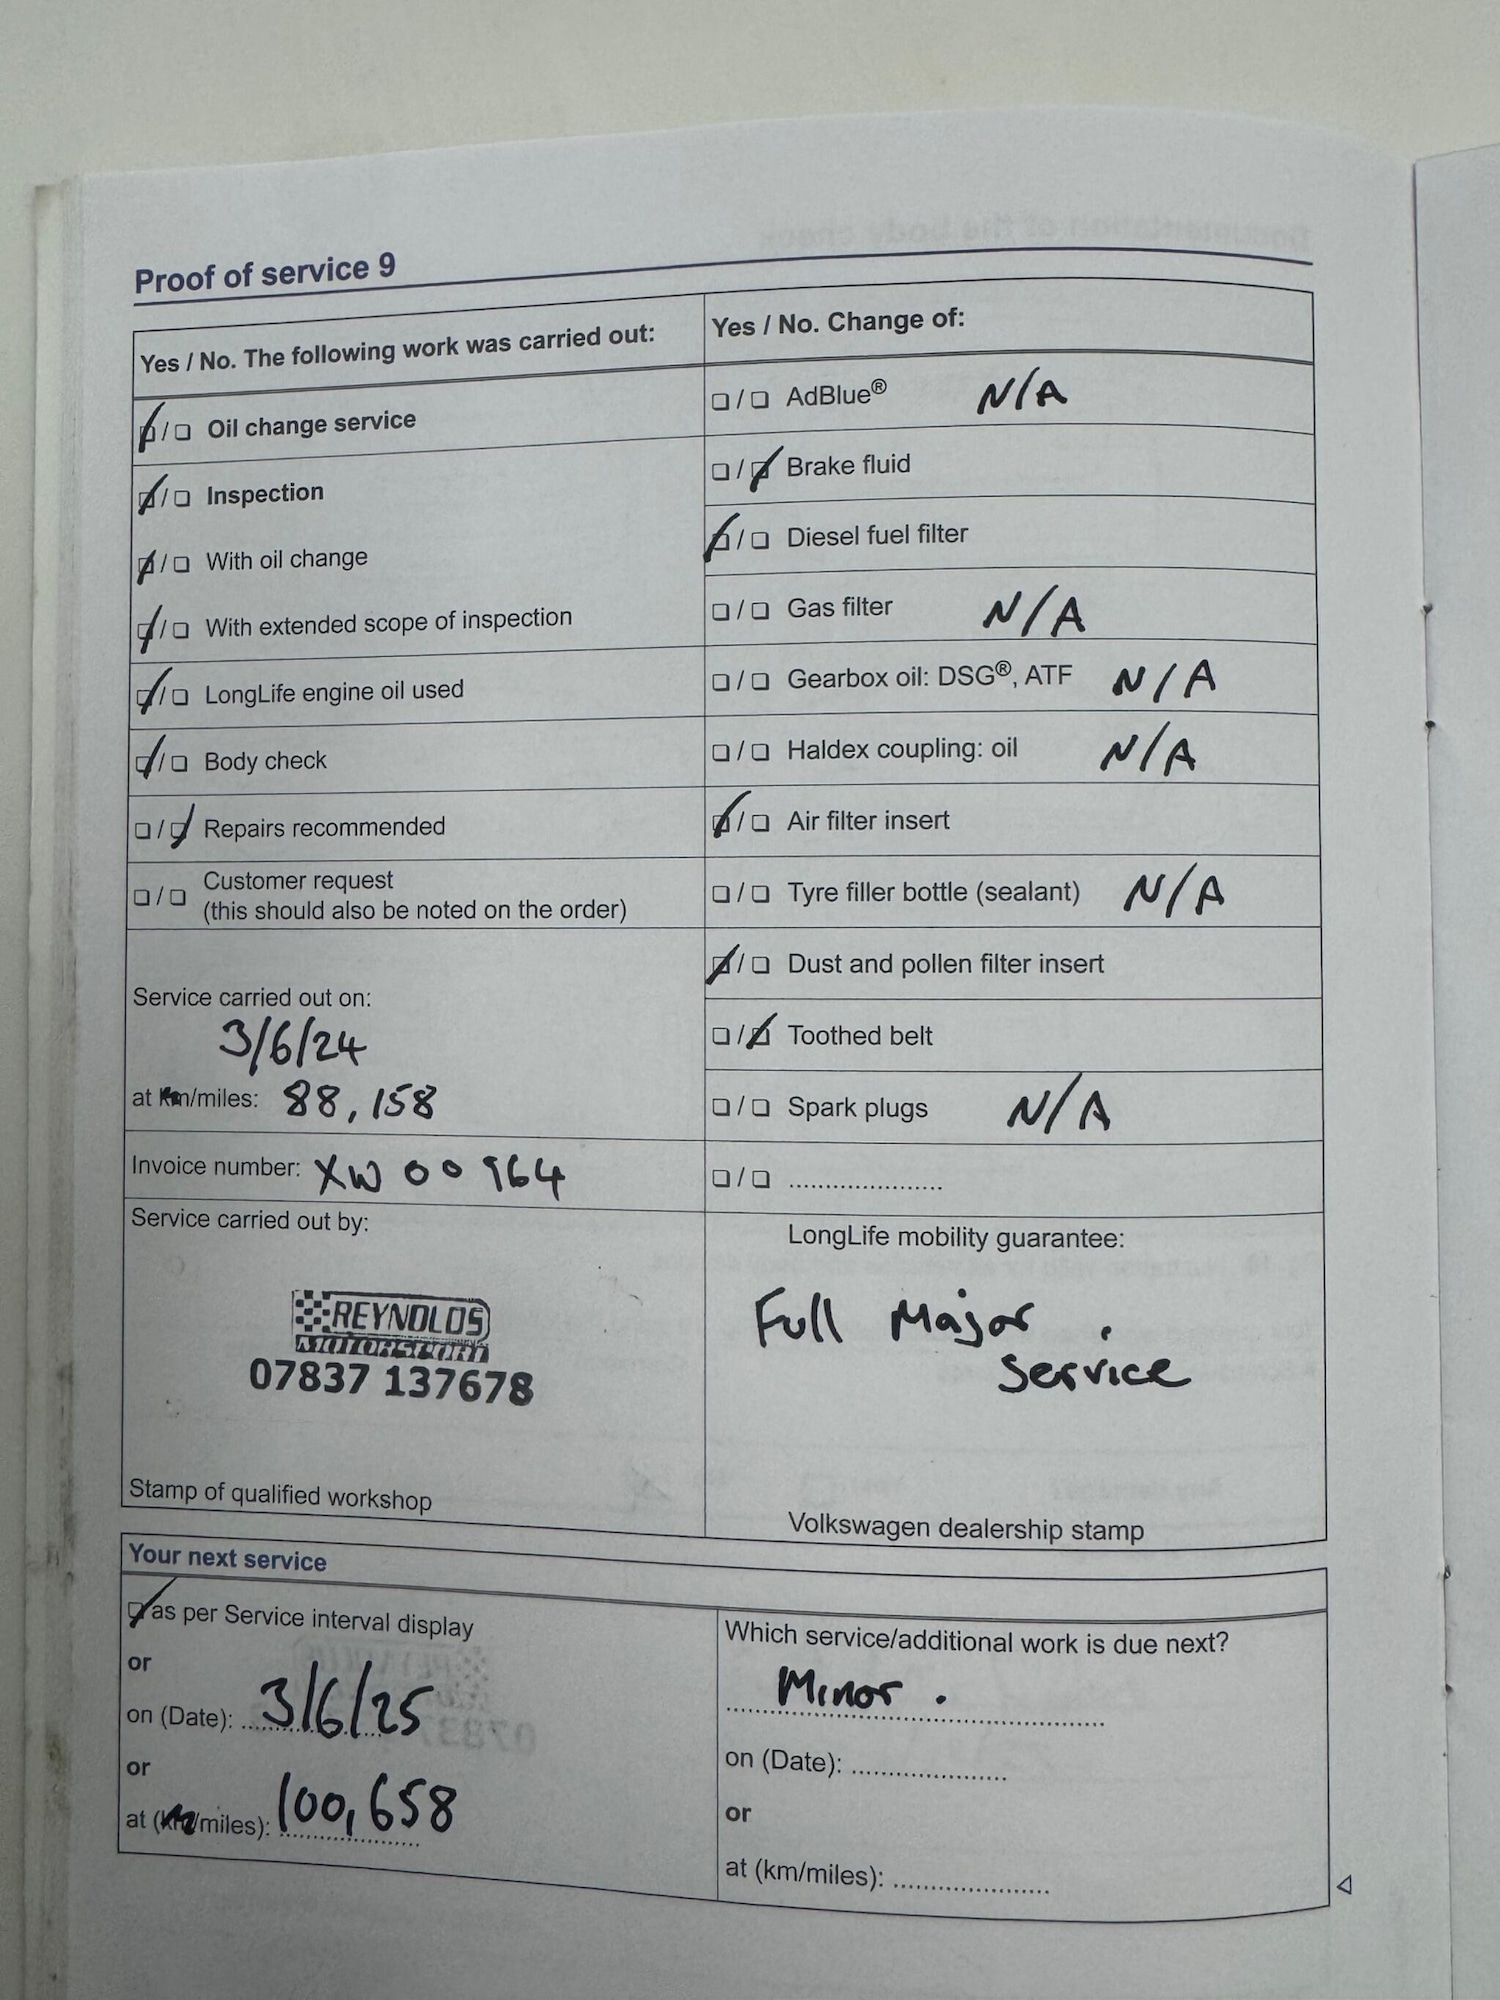 Proof of service 9
Yes / No. The following work was carried out:
Oil change service
Inspection
With oil change
With extended scope of inspection
LongLife engine oil used
Body check
Repairs recommended
Customer request
(this should also be noted on the order)
Service carried out on:
3/6/24
at km/miles: 88,158
Invoice number: XW 00964
Service carried out by:
REYNOLDS
MOTORSPORT
07837 137678
Stamp of qualified workshop
Yes / No. Change of:
AdBlue® N/A
Brake fluid
Diesel fuel filter
Gas filter N/A
Gearbox oil: DSG®, ATF N/A
Haldex coupling: oil N/A
Air filter insert
Tyre filler bottle (sealant) N/A
Dust and pollen filter insert
Toothed belt
Spark plugs N/A
LongLife mobility guarantee:
Full Major
Service
Volkswagen dealership stamp
Your next service
as per Service interval display
or
on (Date): 3/6/25
or
at (km/miles): 100,658
Which service/additional work is due next?
Minor.
on (Date):
or
at (km/miles):